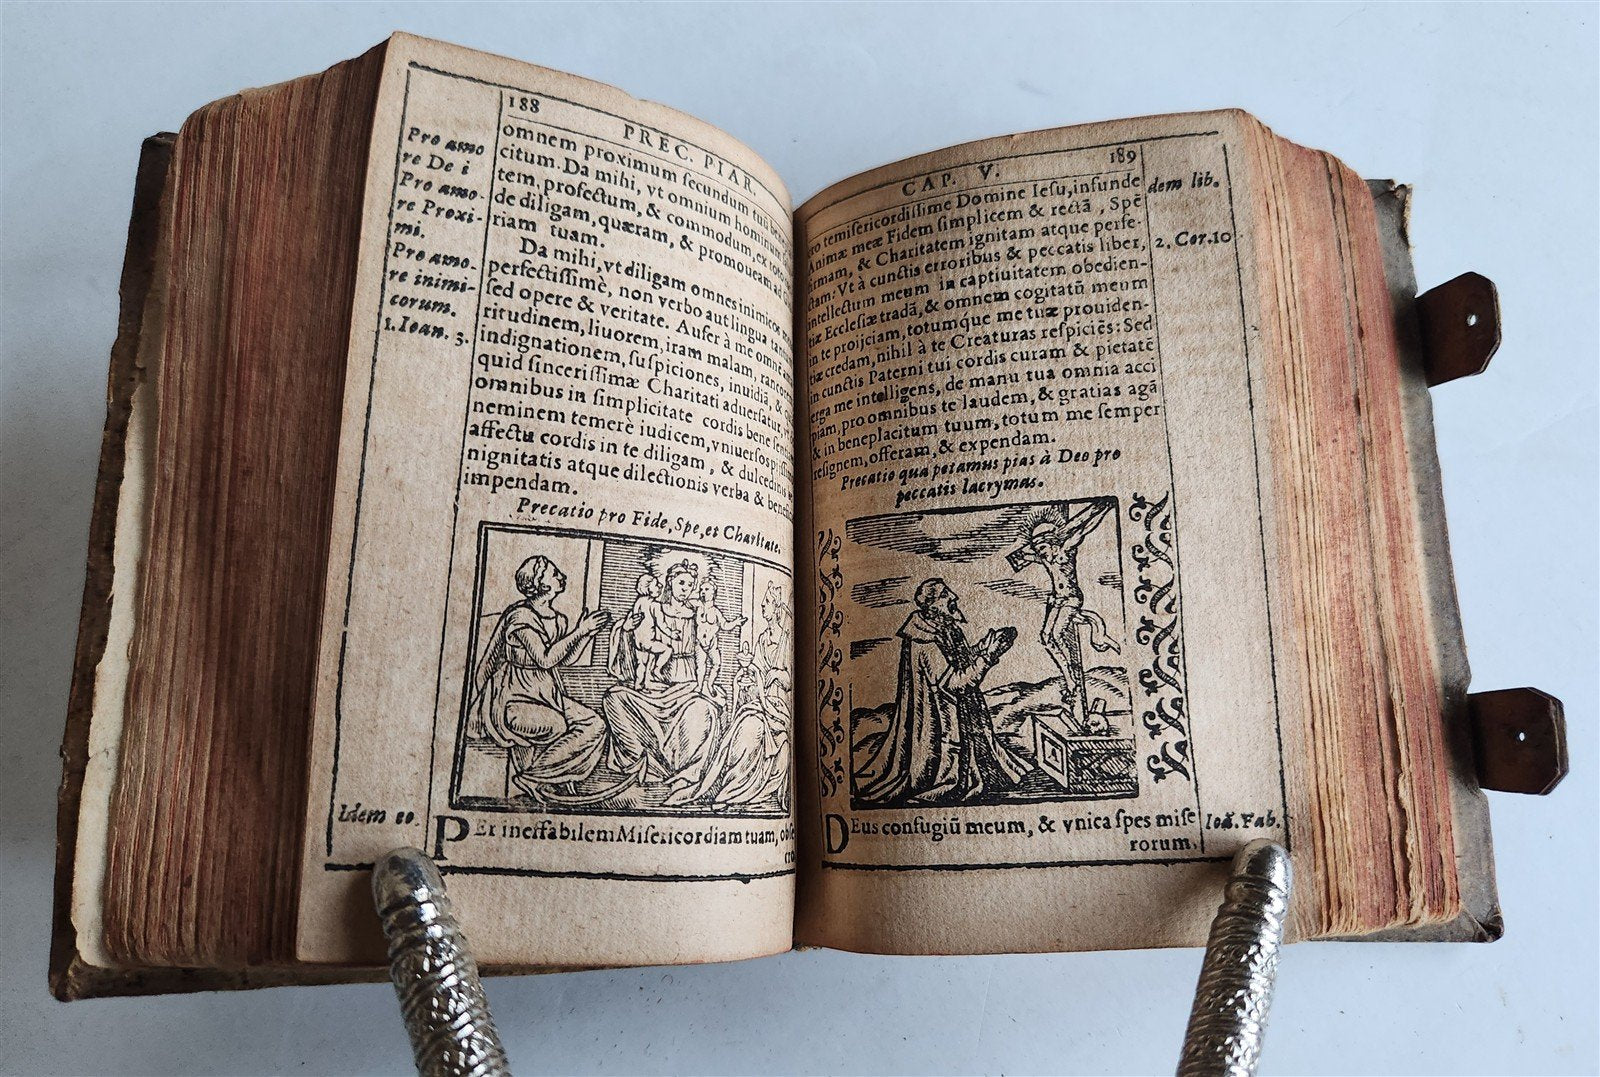 188
PREC. PIAR.
Pro amo
re De i
Pro amo-
re Proxi-
mi.
Pro amo-
re inimi-
corum.
1. Ioan. 3.
omnem proximum ſecundum tuū bene
citum. Da mihi, vt omnium hominum
tem, profectum, & commodum, ex toto
de diligam, quæram, & promoueam ad
riam tuam.
Da mihi, vt diligam omnes inimicos
perfectiſſimè, non verbo aut lingua tantum
ſed opere & veritate. Aufer à me omnē
ritudinem, liuorem, iram malam, rancorem
indignationem, ſuſpiciones, inuidiā, &
quid ſinceriſſimæ Charitati aduerſatur,
omnibus in ſimplicitate cordis bene
neminem temerè iudicem, vniuerſos
affectu cordis in te diligam, & dulcedinis
nignitatis atque dilectionis verba &
impendam.
Precatio pro Fide, Spe, et Charitate.
Idem eo.
PEr ineffabilem Miſericordiam tuam, obſe
cro
CAP. V.
189
dem lib.
2. Cor. 10
cro te miſericordiſſime Domine Ieſu, infunde
Animæ meæ Fidem ſimplicem & rectā, Spē
firmam, & Charitatem ignitam atque perfe-
ctam: Vt à cunctis erroribus & peccatis liber,
intellectum meum in captiuitatem obedien-
tiæ Eccleſiæ tradā, & omnem cogitatū meum
in te proijciam, totumque me tuæ prouiden-
tiæ credam, nihil à te Creaturas reſpiciēs: Sed
in cunctis Paterni tui cordis curam & pietatē
erga me intelligens, de manu tua omnia acci
piam, pro omnibus te laudem, & gratias agā
& in beneplacitum tuum, totum me ſemper
reſignem, offeram, & expendam.
Precatio qua petamus pias à Deo pro
peccatis lacrymas.
DEus confugiū meum, & vnica ſpes miſe
rorum,
Ioā. Fab.